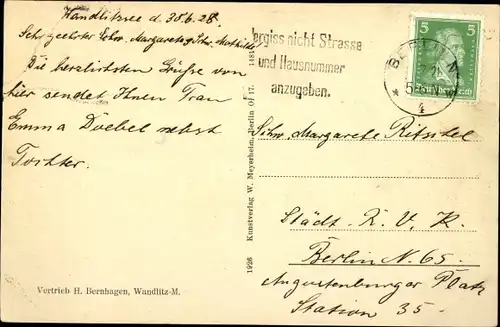 Wandlitzsee d. 30.6.28.
Sehr geehrte Schw. Margarete, Schw. Mathilde!
Die herzlichsten Grüße von
hier sendet Ihnen Frau
Emma Doebel nebst
Tochter.
Vertrieb H. Bernhagen, Wandlitz-M.
1926 Kunstverlag W. Meyerheim, Berlin O 17.
ergiss nicht Strasse
und Hausnummer
anzugeben.
BERLIN
4
5 5
Deutsches Reich
Schw. Margarete
Städt. R. V. K.
Berlin N. 65.
Augustenburger Platz
Station 35.